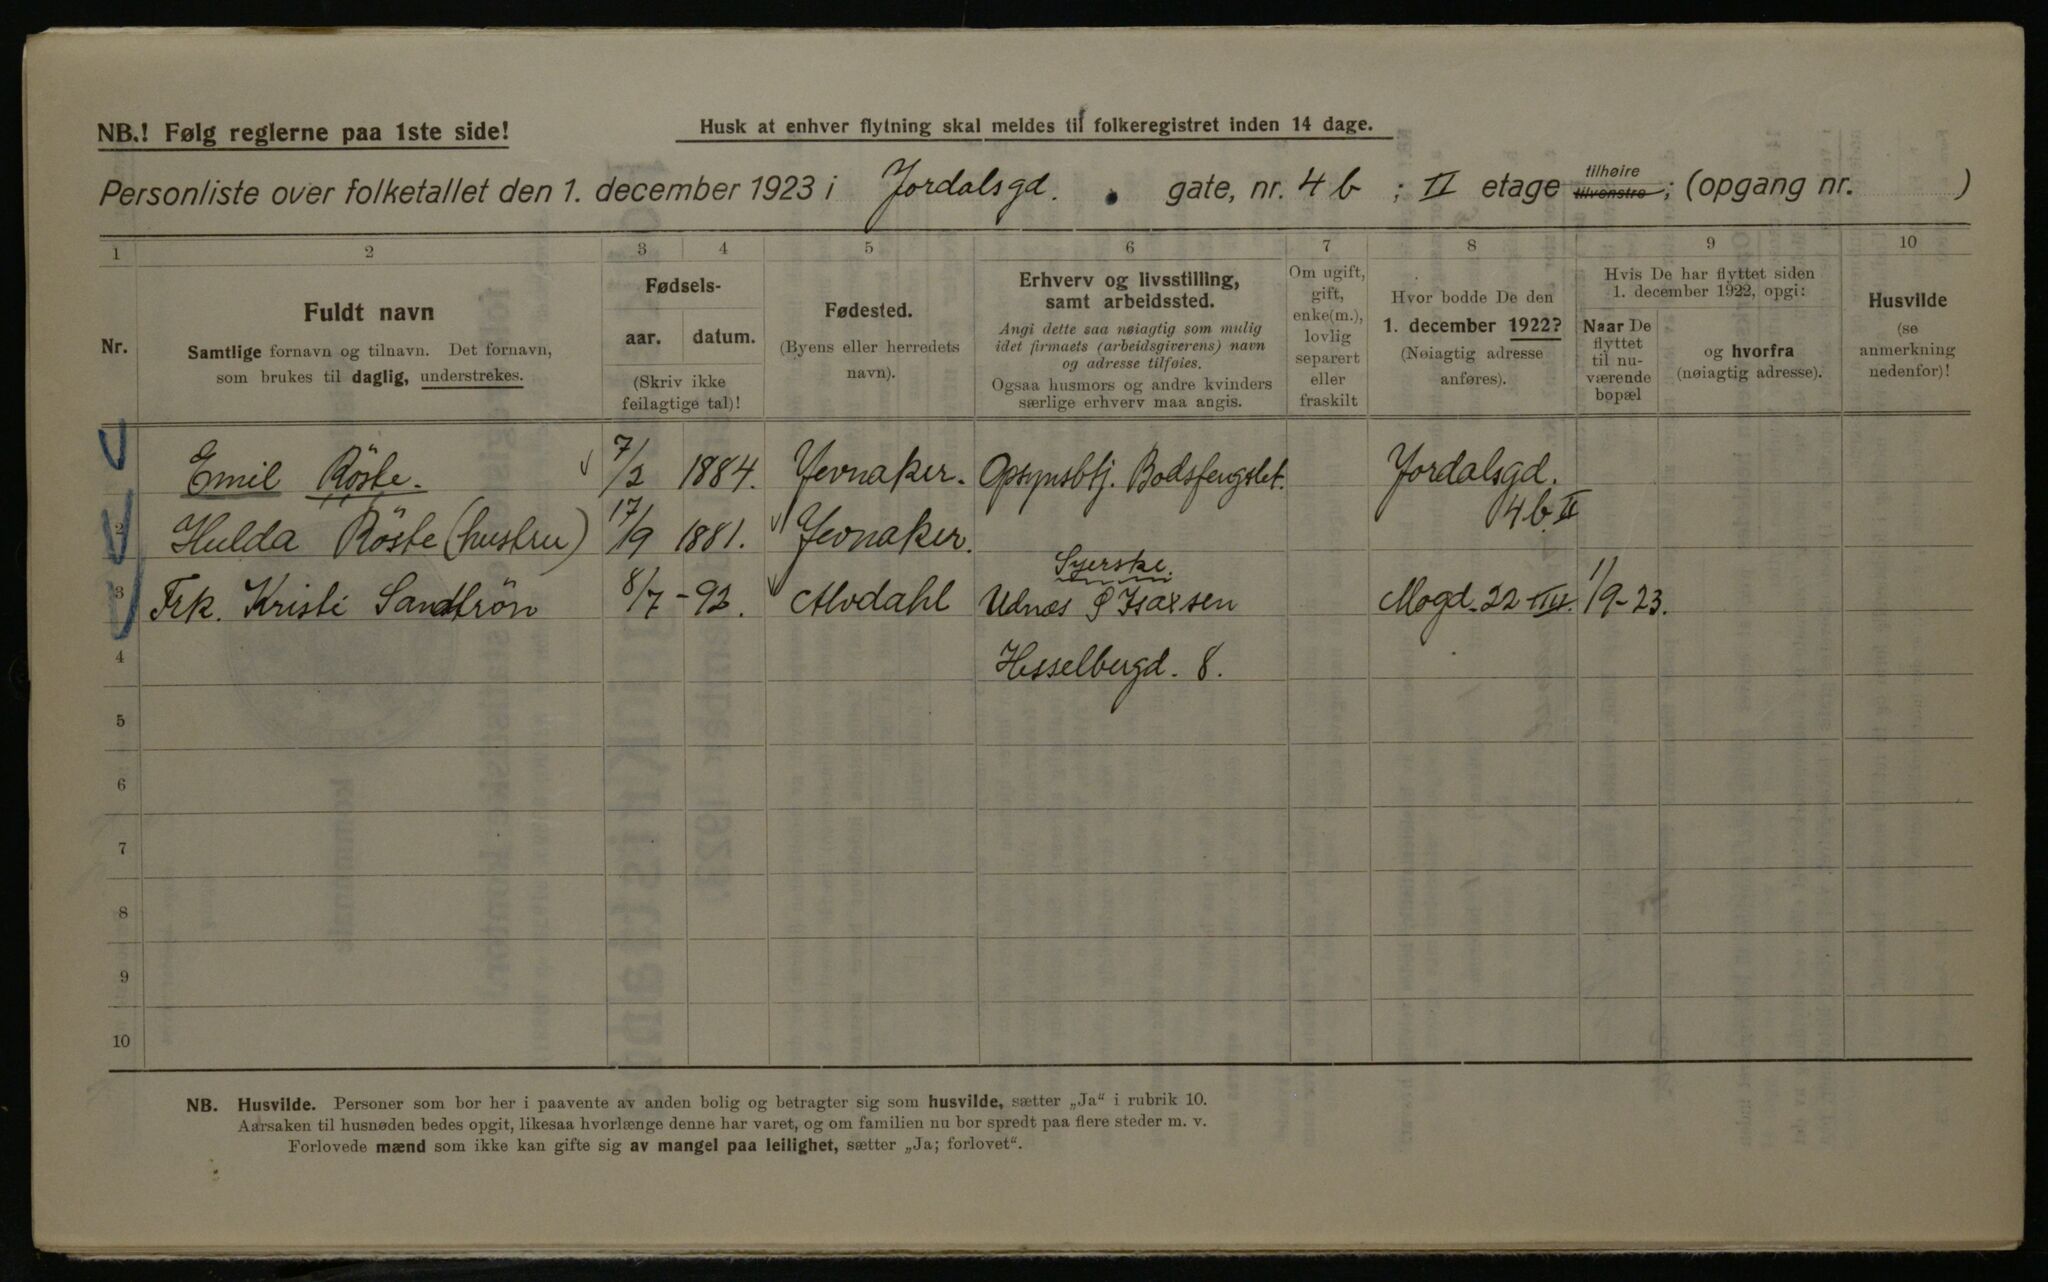 NB.! Følg reglerne paa 1ste side!
Husk at enhver flytning skal meldes til folkeregistret inden 14 dage.
Personliste over folketallet den 1. december 1923 i Jordalsgd. gate, nr. 4 b ; II etage tilhøire tilvenstre; (opgang nr. )
1 2 3 4 5 6 7 8 9 10
Nr.
Fuldt navn
Samtlige fornavn og tilnavn. Det fornavn,
som brukes til daglig, understrekes.
Fødsels-
aar. datum.
(Skriv ikke
feilagtige tal)!
Fødested.
(Byens eller herredets
navn).
Erhverv og livsstilling,
samt arbeidssted.
Angi dette saa nøiagtig som mulig
idet firmaets (arbeidsgiverens) navn
og adresse tilføies.
Ogsaa husmors og andre kvinders
særlige erhverv maa angis.
Om ugift,
gift,
enke(m.),
lovlig
separert
eller
fraskilt
Hvor bodde De den
1. december 1922?
(Nøiagtig adresse
anføres).
Hvis De har flyttet siden
1. december 1922, opgi:
Naar De
flyttet
til nu-
værende
bopæl
og hvorfra
(nøiagtig adresse).
Husvilde
(se
anmerkning
nedenfor)!
Emil Röste. 7/2 1884. Jevnaker. Opsynsbtj. Bodsfengslet. Jordalsgd.
4 b II
2 Hulda Röste (hustru) 17/9 1881. Jevnaker.
Syerske.
3 Frk. Kristi Sandtrön 8/7 - 92. Alvdahl Udnæs & Isaksen Mogd. 22 III. 1/9-23.
4 Hesselbergd. 8.
5
6
7
8
9
10
NB. Husvilde. Personer som bor her i paavente av anden bolig og betragter sig som husvilde, sætter „Ja" i rubrik 10.
Aarsaken til husnøden bedes opgit, likesaa hvorlænge denne har varet, og om familien nu bor spredt paa flere steder m. v.
Forlovede mænd som ikke kan gifte sig av mangel paa leilighet, sætter „Ja; forlovet".